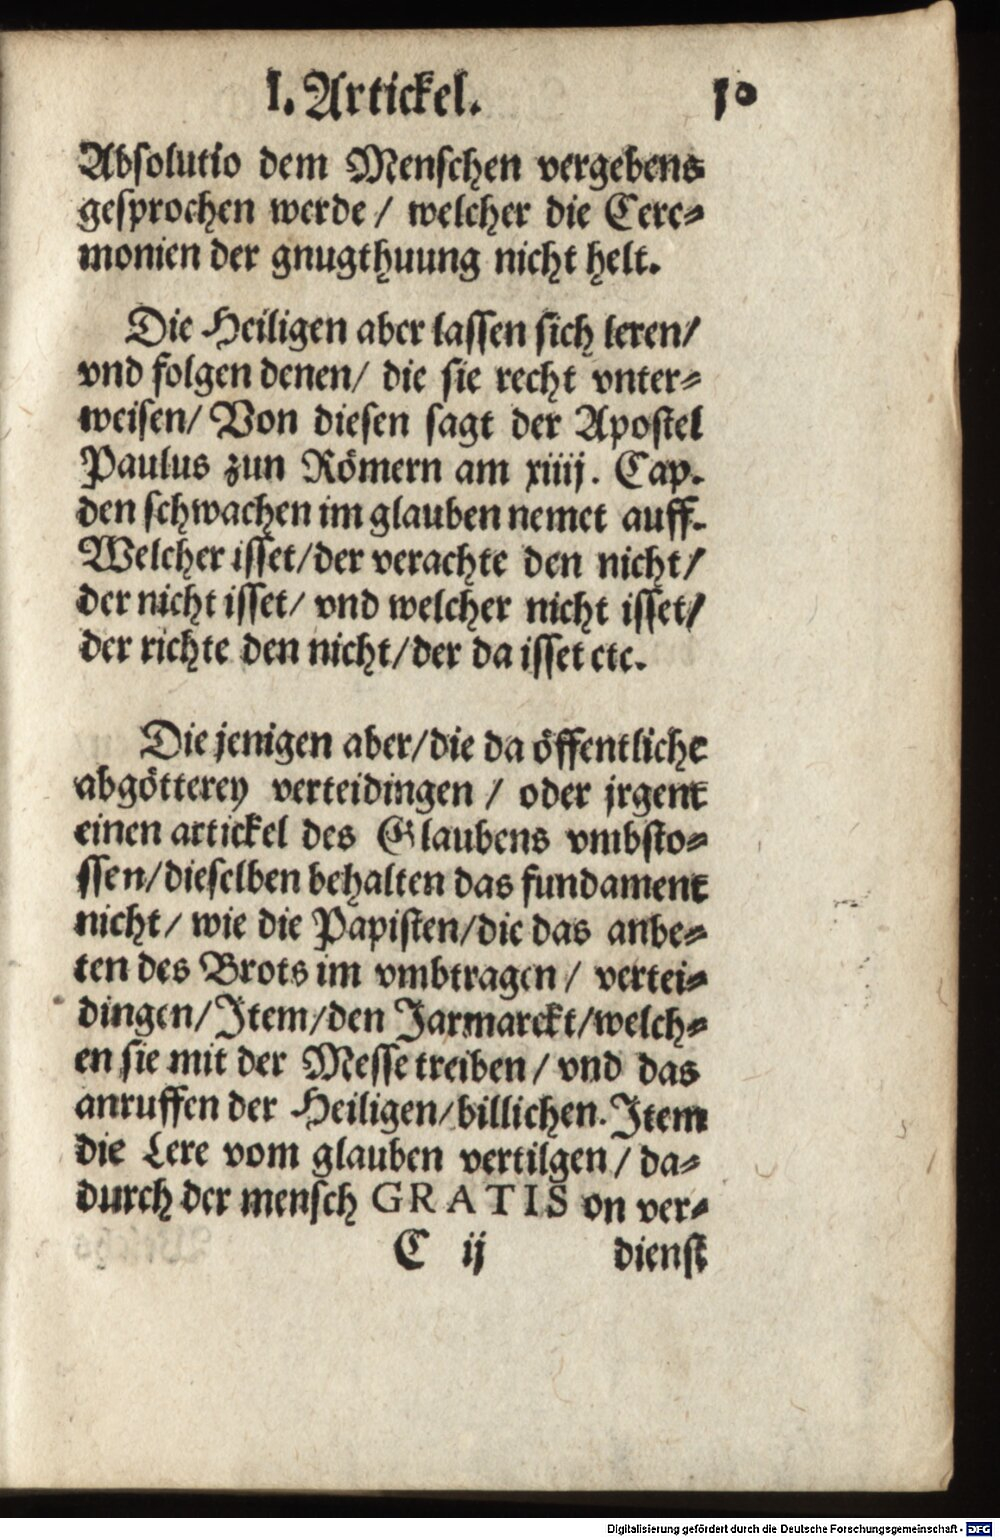 I. Artickel. 10
Absolutio dem Menschen vergebens
gesprochen werde / welcher die Cere⸗
monien der gnugthuung nicht helt.
Die Heiligen aber lassen sich leren/
vnd folgen denen/ die sie recht vnter⸗
weisen/ Von diesen sagt der Apostel
Paulus zun Römern am xiiij. Cap.
den schwachen im glauben nemet auff.
Welcher isset/der verachte den nicht/
der nicht isset/ vnd welcher nicht isset/
der richte den nicht/der da isset etc.
Die jenigen aber/die da öffentliche
abgötterey verteidingen / oder jrgent
einen artickel des Glaubens vmbsto⸗
ssen/dieselben behalten das fundament
nicht/ wie die Papisten/die das anbe⸗
ten des Brots im vmbtragen / vertei⸗
dingen/Item/den Jarmarckt/welch⸗
en sie mit der Messe treiben / vnd das
anruffen der Heiligen/billichen. Item
die Lere vom glauben vertilgen / da⸗
durch der mensch GRATIS on ver⸗
C ij dienst
Digitalisierung gefördert durch die Deutsche Forschungsgemeinschaft - DFG